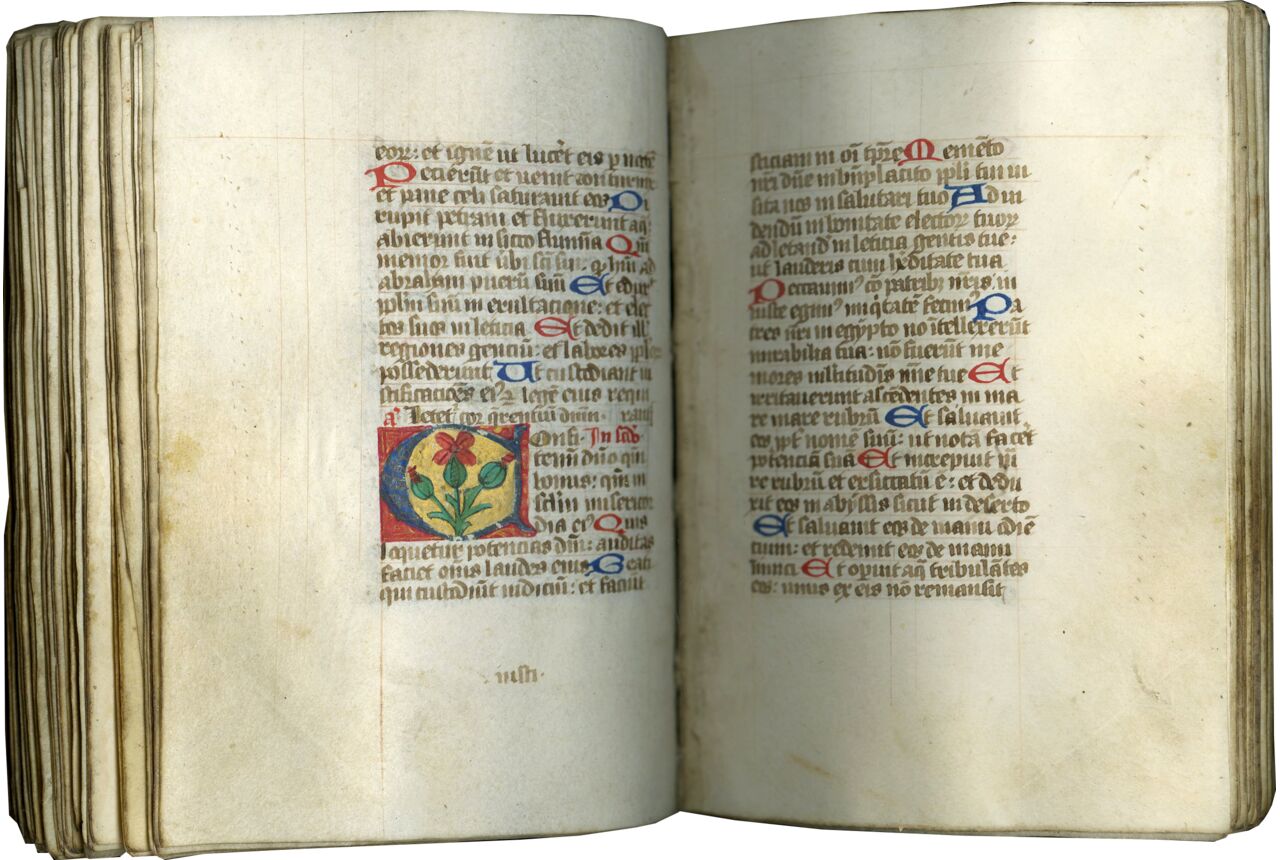 eoꝝ: et ignē ut lucēt eis ꝑ noctē
Petierūt et uenit coturnix
et pane celi saturauit eos Di
rupit petram et fluxerunt aq̄
abierunt in sicco flumīa Qm̄
memor fuit ūbi sc̄i sui: q̄ hūit ad
abraham puerū suū Et eduxᵗ
plm̄ suū in exultacione: et elec
tos suos in leticia Et dedit ill̄
regiones genciū: et labores pplor
possederunt Ut custodiant iu
stificacōes eiꝰ ⁊ legē eius requi
aͣ Letetᵣ cor q̄rentiū dnm̄. rant
Confi In scdo
temi dn̄o qm̄
bonus: qm̄ in
sclm̄ misericor
dia eiꝰ Quis
loquetur potencias dn̄i: auditas
faciet oms̄ laudes eius Beati
qui custodiūt iudiciū: et faciūt
iusti
sticiam in oī tp̄re Memēto
nr̄i dn̄e in bn̄placito ppl̄i tui ui
sita nos in salutari tuo Ad ui
dendū in bonitate electoꝝ tuoꝝ
ad letand̄ in leticia gentis tue:
ut lauderis cum hēditate tua
Peccauimꝰ cū patribꝫ nr̄is in
iuste egimꝰ iniq̄tatē fecimꝰ Pa
tres nr̄i in egypto nō ītellexerūt
mirabilia tua: nō fuerūt me
mores ml̄titudīs mīe tue Et
irritauerunt ascēdentes in ma
re mare rubrū Et saluauit
eos ꝓpt̄ nomē suū: ut notā facēt
potenciā suā Et increpuit ma
re rubrū et exsiccatū ē: et dedu
xit eos in abyssis sicut in deserto
Et saluauit eos de manu odiē
cium: et redemit eos de manu
inimici Et opuit aq̄ tribulātes
eos: unus ex eis nō remansit